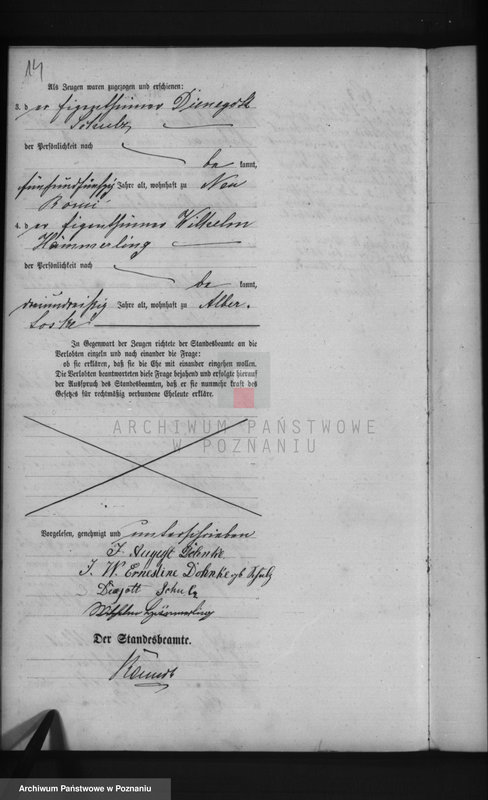 14
Als Zeugen waren zugezogen und erschienen:
3. der Eigenthümer Dienegott
Schulz
der Persönlichkeit nach
be kannt,
fünfundfünfzig Jahre alt, wohnhaft zu Neu
Borui
4. der Eigenthümer Wilhelm
Hämmerling
der Persönlichkeit nach
be kannt,
dreiunddreißig Jahre alt, wohnhaft zu Alber-
loske
In Gegenwart der Zeugen richtete der Standesbeamte an die
Verlobten einzeln und nach einander die Frage:
ob sie erklären, daß sie die Ehe mit einander eingehen wollen.
Die Verlobten beantworteten diese Frage bejahend und erfolgte hierauf
der Ausspruch des Standesbeamten, daß er sie nunmehr kraft des
Gesetzes für rechtmäßig verbundene Eheleute erkläre.
ARCHIWUM PAŃSTWOWE
W POZNANIU
Vorgelesen, genehmigt und unterschrieben
J. August Dohnke
J. W. Ernestine Dohnke geb Schulz
Schulz
Wilhelm Hämmerling
Der Standesbeamte.
Archiwum Państwowe w Poznaniu